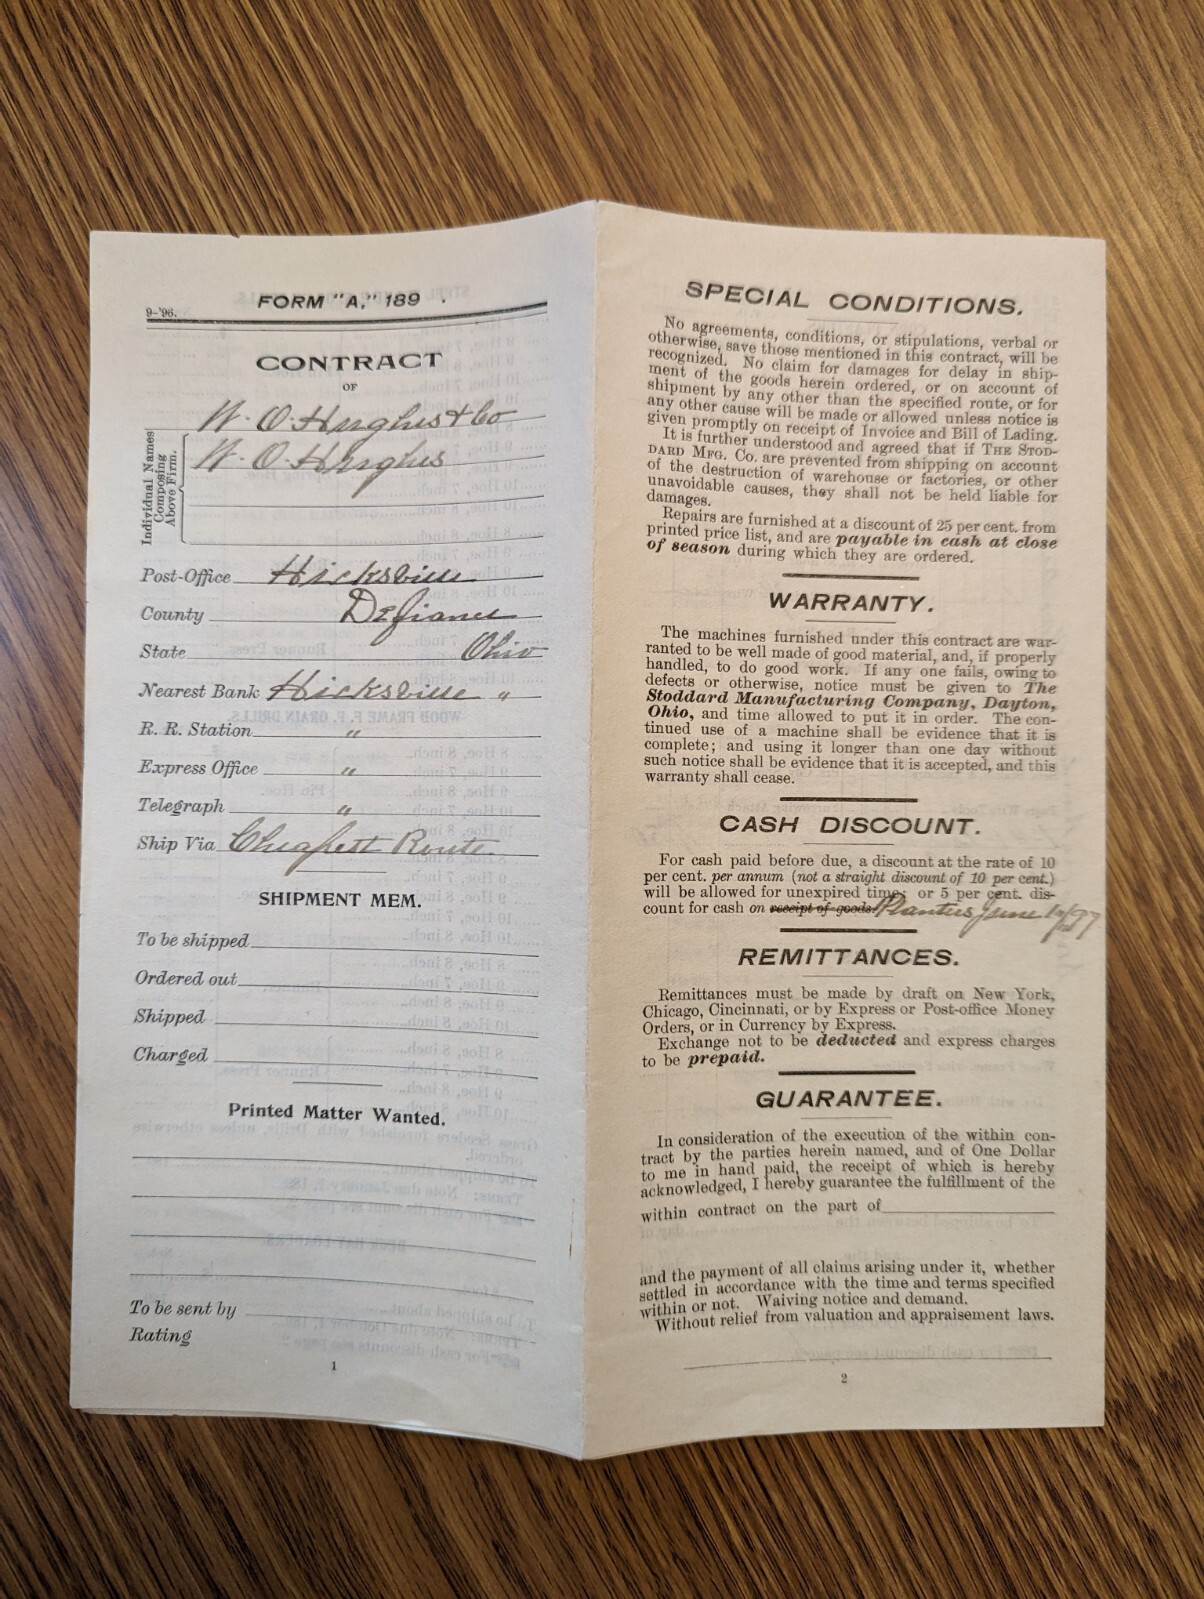 9-'96.
FORM "A," 189 .
CONTRACT
OF
W. O. Hughes & Co
Individual Names
Composing
Above Firm.
W. O. Hughes
Post-Office Hicksville
County Defiance
State Ohio
Nearest Bank Hicksville "
R. R. Station "
Express Office "
Telegraph "
Ship Via Cheapest Route
SHIPMENT MEM.
To be shipped
Ordered out
Shipped
Charged
Printed Matter Wanted.
To be sent by
Rating
1
SPECIAL CONDITIONS.
No agreements, conditions, or stipulations, verbal or
otherwise, save those mentioned in this contract, will be
recognized. No claim for damages for delay in ship-
ment of the goods herein ordered, or on account of
shipment by any other than the specified route, or for
any other cause will be made or allowed unless notice is
given promptly on receipt of Invoice and Bill of Lading.
It is further understood and agreed that if THE STOD-
DARD MFG. CO. are prevented from shipping on account
of the destruction of warehouse or factories, or other
unavoidable causes, they shall not be held liable for
damages.
Repairs are furnished at a discount of 25 per cent. from
printed price list, and are payable in cash at close
of season during which they are ordered.
WARRANTY.
The machines furnished under this contract are war-
ranted to be well made of good material, and, if properly
handled, to do good work. If any one fails, owing to
defects or otherwise, notice must be given to The
Stoddard Manufacturing Company, Dayton,
Ohio, and time allowed to put it in order. The con-
tinued use of a machine shall be evidence that it is
complete; and using it longer than one day without
such notice shall be evidence that it is accepted, and this
warranty shall cease.
CASH DISCOUNT.
For cash paid before due, a discount at the rate of 10
per cent. per annum (not a straight discount of 10 per cent.)
will be allowed for unexpired time; or 5 per cent. dis-
count for cash on receipt of goods. Planters June
REMITTANCES.
Remittances must be made by draft on New York,
Chicago, Cincinnati, or by Express or Post-office Money
Orders, or in Currency by Express.
Exchange not to be deducted and express charges
to be prepaid.
GUARANTEE.
In consideration of the execution of the within con-
tract by the parties herein named, and of One Dollar
to me in hand paid, the receipt of which is hereby
acknowledged, I hereby guarantee the fulfillment of the
within contract on the part of
and the payment of all claims arising under it, whether
settled in accordance with the time and terms specified
within or not. Waiving notice and demand.
Without relief from valuation and appraisement laws.
2